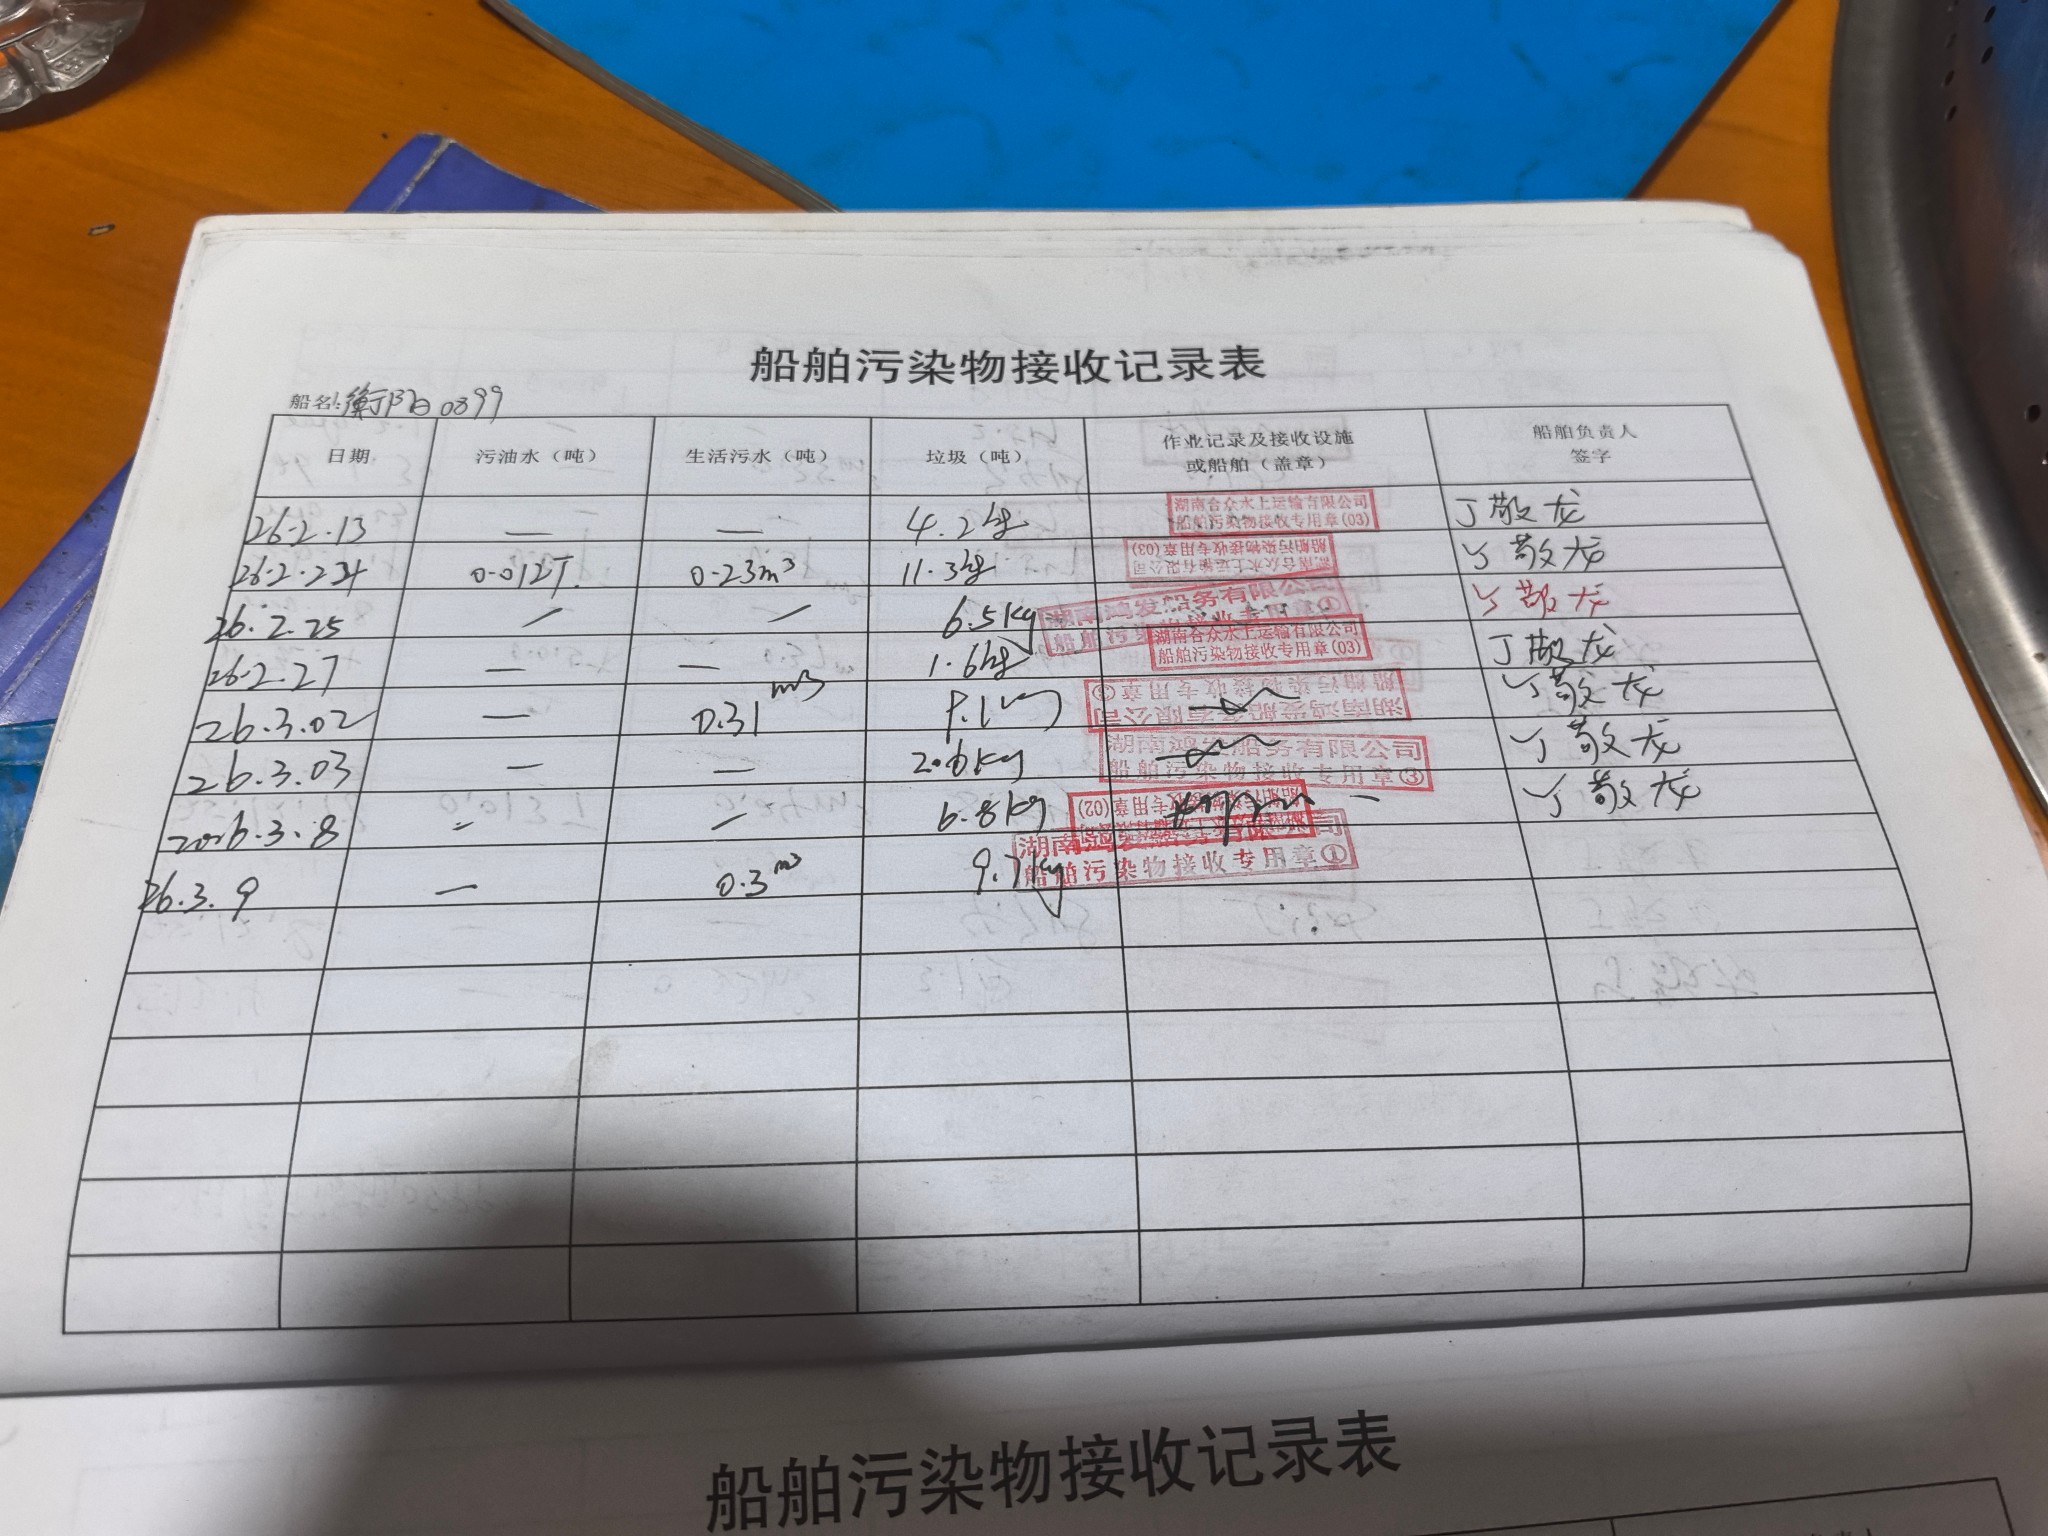 船舶污染物接收记录表
船名: 衡阳0899
日期 污油水（吨） 生活污水（吨） 垃圾（吨） 作业记录及接收设施或船舶（盖章） 船舶负责人签字
26.2.13 — — 4.2kg 湖南合众水上运输有限公司 船舶污染物接收专用章(03) 丁敬龙
26.2.24 0.012T. 0.23m³ 11.3kg 湖南合众水上运输有限公司 船舶污染物接收专用章(03) 丁敬龙
26.2.25 — — 6.5kg 湖南鸿发船务有限公司 船舶污染物接收专用章① 丁敬龙
26.2.27 — — 1.6kg 湖南合众水上运输有限公司 船舶污染物接收专用章(03) 丁敬龙
26.3.02 — 0.31m³ 湖南鸿发船务有限公司 船舶污染物接收专用章 丁敬龙
26.3.03 — — 2.6kg 湖南鸿发船务有限公司 船舶污染物接收专用章③ 丁敬龙
2026.3.8 — — 6.8kg 船舶污染物接收专用章(02) 丁敬龙
26.3.9 — 0.3m³ 9.7kg 湖南鸿发船务有限公司 船舶污染物接收专用章①
船舶污染物接收记录表